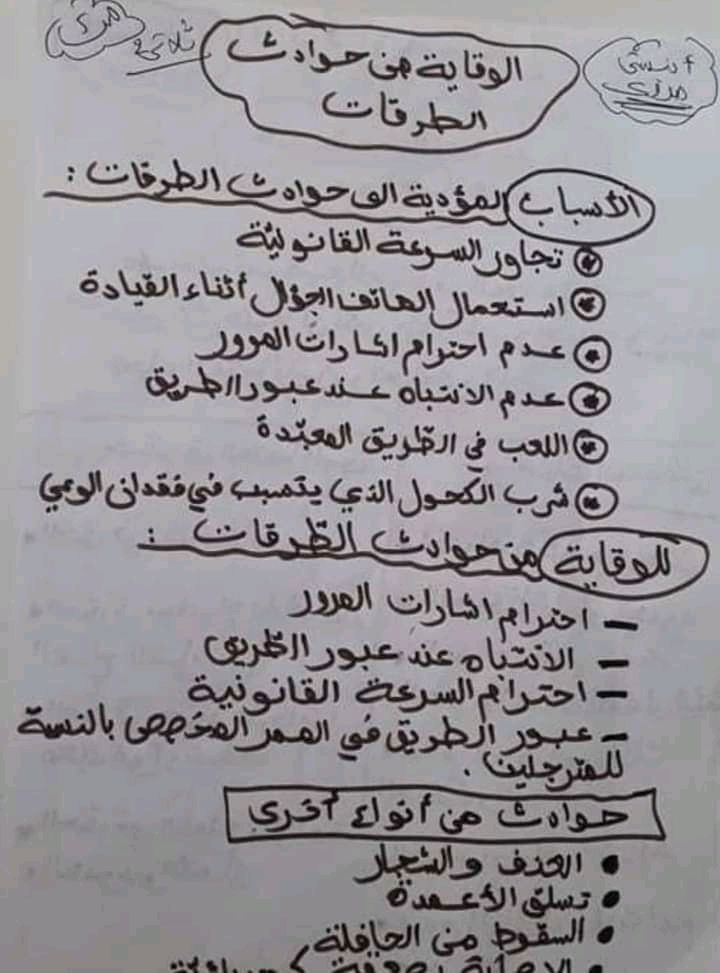 ثلاثي 3
الوقاية من حوادث
الطرقات
الأسباب المؤدية الى حوادث الطرقات :
تجاوز السرعة القانونية
استعمال الهاتف الجوال أثناء القيادة
عدم احترام اشارات المرور
عدم الانتباه عند عبور الطريق
اللعب في الطريق المعبّدة
شرب الكحول الذي يتسبب في فقدان الوعي
للوقاية من حوادث الطرقات :
– احترام اشارات المرور
– الانتباه عند عبور الطريق
– احترام السرعة القانونية
– عبور الطريق في الممر المخصص بالنسبة
للمترجلين .
حوادث من أنواع أخرى
• العنف والشجار
• تسلق الأعمدة
• السقوط من الحافلة